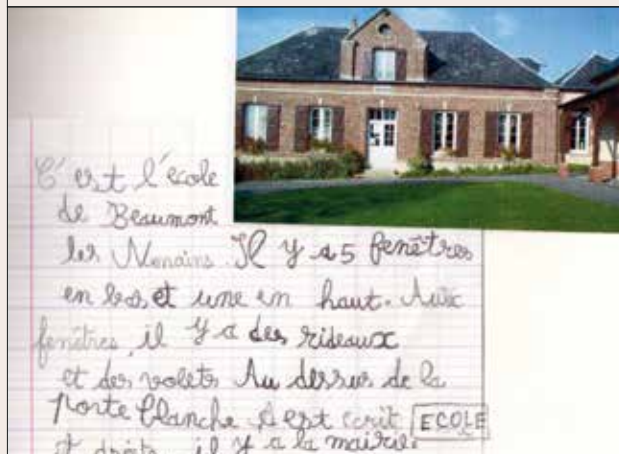 C'est l'école
de Beaumont
les Nonains. Il y a 5 fenêtres
en bas, et une en haut. Aux
fenêtres, il y a des rideaux
et des volets. Au dessus de la
porte blanche est écrit ECOLE
droite, il y a la mairie.